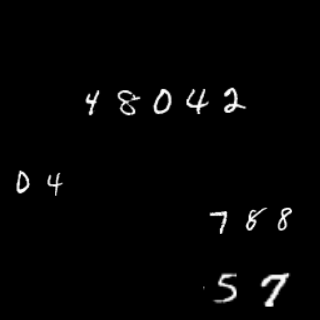 48042
04
788
57